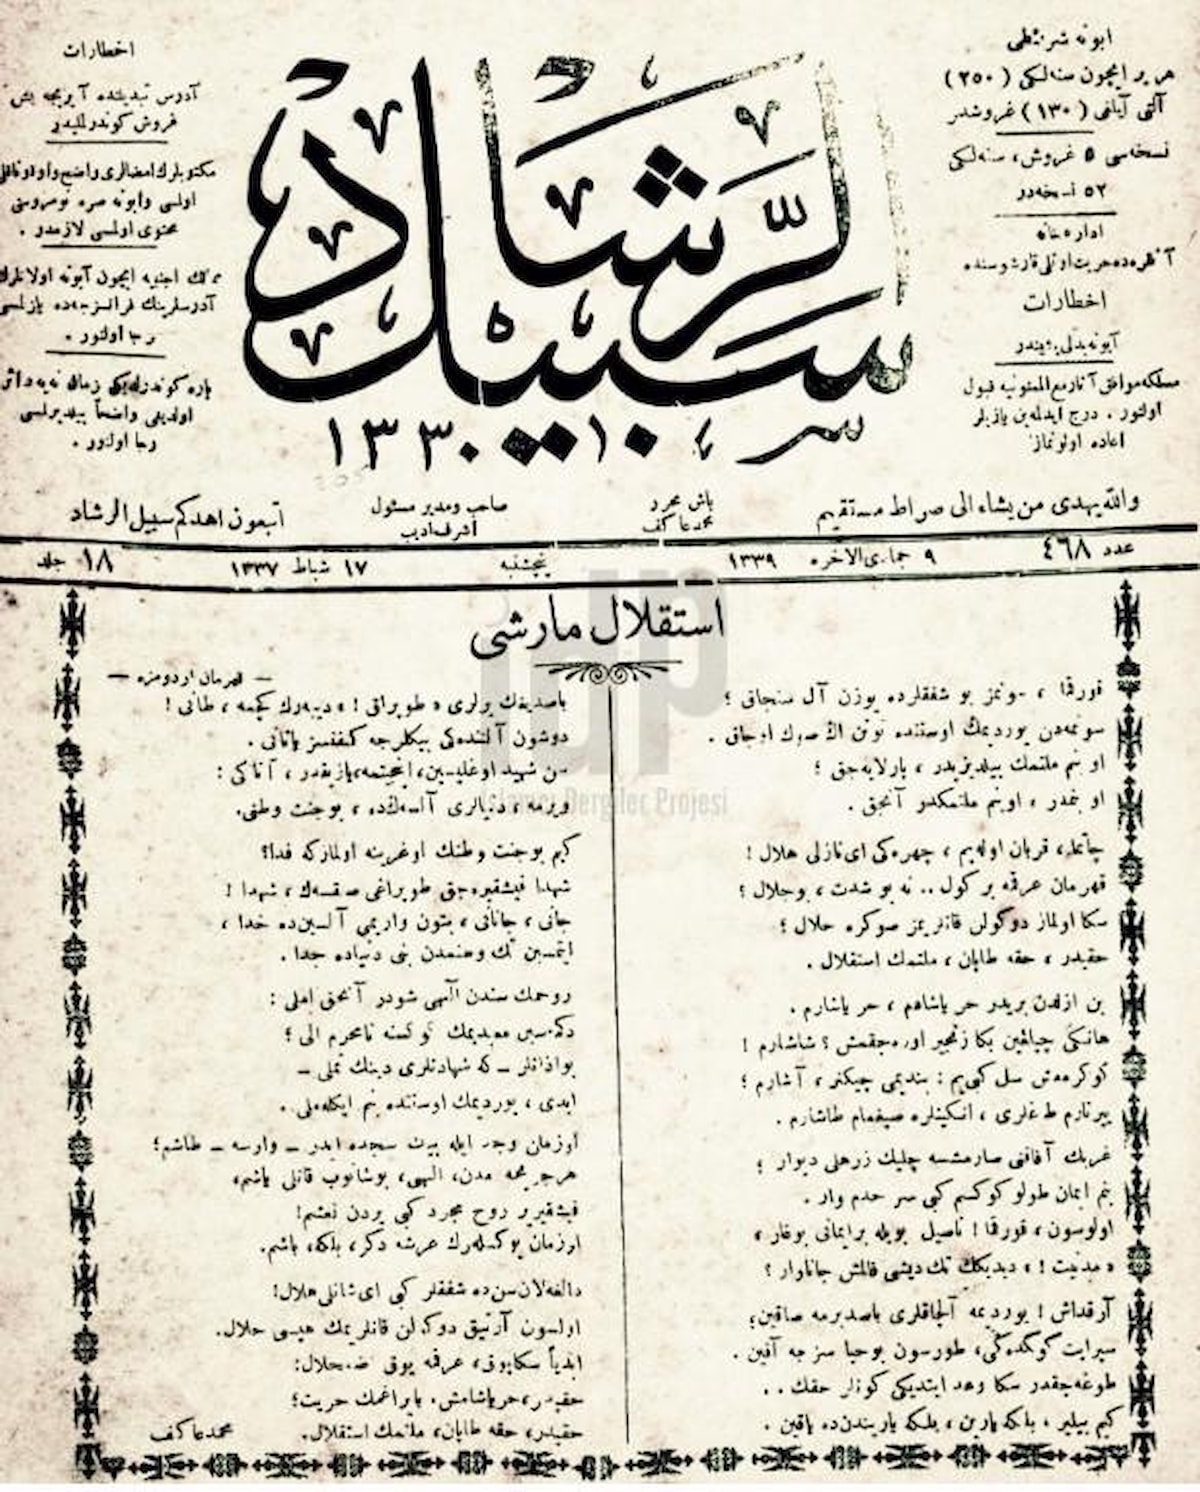 ابونه شرائطی
هر یر ایچون سنه‌لکی (۲۵۰)
آلتی آیلغی (۱۳۰) غروشدر
نسخه‌سی ۵ غروش، سنه‌لکی
۵۲ نسخه‌در
اداره‌خانه
آنقره‌ده حریت اوتلی قارشوسنده
اخطارات
آبونه بدلی پشیندر
مسلکه موافق آثار مع الممنونیه قبول
اولنور. درج ایدلمه‌ین یازیلر
اعاده اولونماز
سبیل الرشاد
۱۳۳۰
اخطارات
آدرس تبدیلنده آیریجه بش
غروش کوندرلملیدر
مکتوبلرك امضالری واضح و اوقوناقلی
اولمسی وابونه صره نومروسنی
محتوی اولمسی لازمدر.
ممالك اجنبیه ایچون آبونه اولانلرك
آدرسلرینك فرانسزجه‌ده یازلمسی
رجا اولنور.
پاره کوندرلدیکی زمان نه‌یه دائر
اولدیغی واضحاً بیلدیرلمسی
رجا اولنور.
والله یهدی من یشاء الی صراط مستقیم
باش محرر
محمد عاکف
صاحب ومدیر مسئول
اشرف ادیب
اتبعون اهدکم سبیل الرشاد
عدد ۴۶۸
۹ جماری الآخره ۱۳۳۹
پنجشنبه
۱۷ شباط ۱۳۳۷
جلد ۱۸
استقلال مارشی
— قهرمان اردومزه —
قورقما، سونمز بو شفقلرده یوزن آل سنجاق؛
سونمه‌دن یوردیمڭ اوستنده توتن اڭ صوڭ اوجاق.
او بنم ملتمك ییلدیزیدر، پارلایه‌جق؛
او بنمدر، او بنم ملتمکدر آنجق.
چاتما، قربان اوله‌یم، چهره‌کی ای نازلی هلال!
قهرمان عرقمه بر کول.. نه بو شدت، بو جلال؟
سکا اولماز دوکولن قانلریمز صوکره حلال؛
حقیدر، حقه طاپان، ملتمك استقلال.
بن ازلدن بریدر حر یاشادم، حر یاشارم.
هانکی چیلغین بکا زنجیر اوره‌جقمش؟ شاشارم!
کوکره‌مش سل کبی‌یم: بندیمی چیکنر، آشارم؛
ییرتارم طاغلری، انکینلره صیغمام طاشارم.
غربك آفاقنی صارمشسه چلیك زرهلی دیوار؛
بنم ایمان طولو کوکسم کبی سر حدم وار.
اولوسون، قورقما! ناصیل بویله بر ایمانی بوغار،
«مدنیت!» دیدیکك تك دیشی قالمش جاناوار؟
آرقداش! یوردیمه آلچاقلری باصدیرمه صاقین؛
سپرایت کوکده‌کی، طورسون بو حیا سزجه آقین.
طوغه‌جقدر سکا وعد ایتدیکی کونلر حقك..
کیم بیلیر، بلکه یارین، بلکه یاریندن‌ده یاقین.
باصدیغك یرلری «طوپراق!» دییه‌رك کچمه، طانی!
دوشون آلتنده‌کی بیکلرجه کفنسز یاتانی.
سن شهید اوغلیسین، اینجیتمه، یازیقدر، آتاکی:
ویرمه، دنیالری آلسه‌ڭده، بو جنت وطنی.
کیم بو جنت وطنك اوغرینه اولمازکه فدا؟
شهدا فیشقیره‌جق طوپراغی صیقسه‌ك، شهدا!
جانی، جانانی، بتون واریمی آلسین‌ده خدا،
ایتمسین تك وطنمدن بنی دنیاده جدا.
روحمك سندن الهی شودر آنجق املی:
دکمه‌سین معبدیمك کوکسنه نامحرم الی؛
بو اذانلر ــ که شهادتلری دینك تملی ــ
ابدی، یوردیمك اوستنده بنم ایکله‌ملی.
او زمان وجد ایله بیك سجده ایدر ــ وارسه ــ طاشم؛
هر جریحه‌مدن، الهی، بوشانوب قانلی یاشم،
فیشقیریر روح مجرد کبی یردن نعشم!
او زمان یوکسله‌رك عرشه دکر، بلکه، باشم.
دالغه‌لان سن‌ده شفقلر کبی ای شانلی هلال!
اولسون آرتیق دوکیلن قانلریمك هپسی حلال.
ابدیاً سکا یوق، عرقمه یوق اضمحلال:
حقیدر، حر یاشامش، بایراغمك حریت؛
حقیدر، حقه طاپان، ملتمك استقلال.
محمد عاکف
İslamcı Dergiler Projesi